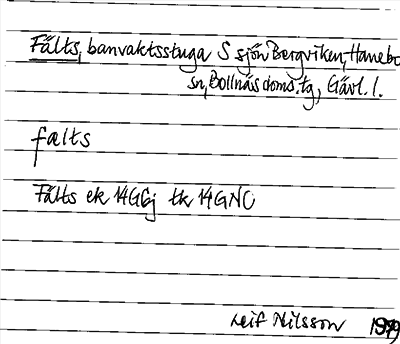 Fälts, banvaktsstuga S sjön Bergviken, Hanebo
sn, Bollnäs doms.tg, Gävl. l.
falts
Fälts ek 14G6j tk 14GNO
Leif Nilsson 1979